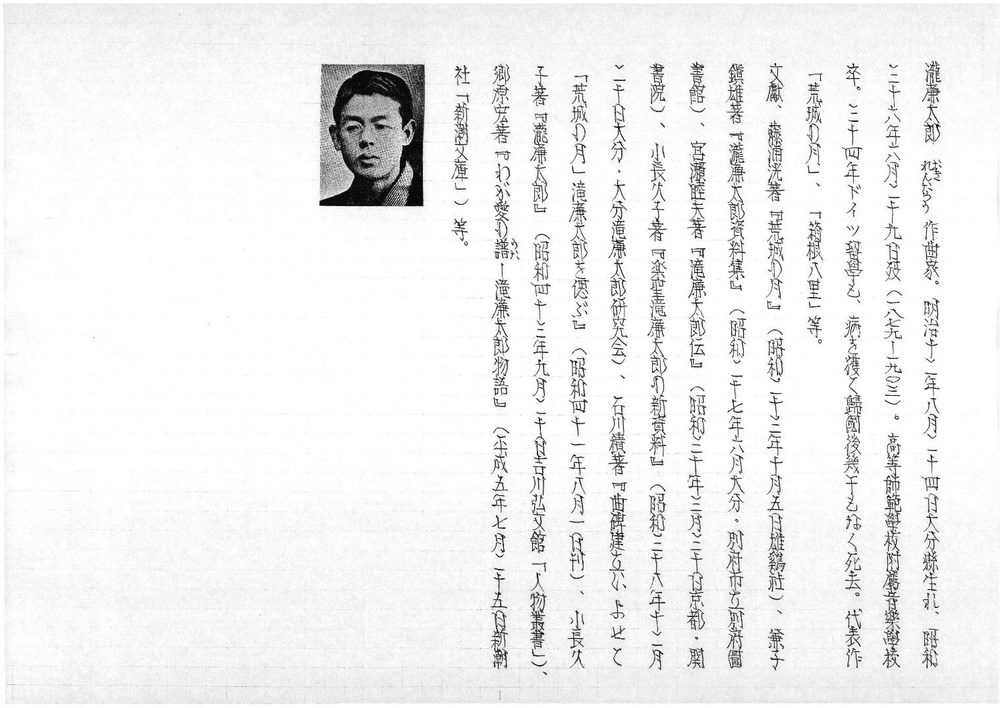 瀧廉太郎 たき れんたらう 作曲家。明治十二年八月二十四日大分縣生れ、昭和
三十六年六月二十九日歿（一八七九ー一九〇三）。高等師範學校附屬音樂學校
卒。三十四年ドイツ留學も、病を獲て歸國後幾干もなく死去。代表作
「荒城の月」、「箱根八里」等。
文獻、藤浦洸著『荒城の月』（昭和二十三年十月五日雄鷄社）、兼子
鎭雄著『瀧廉太郎資料集』（昭和二十七年六月大分・別府市立別府圖
書館）、宮瀬睦夫著『滝廉太郎伝』（昭和三十年三月三十日京都・関
書院）、小長久子著『楽聖滝廉太郎の新資料』（昭和三十八年十二月
二十日大分・大分滝廉太郎研究会）、石川績著『曲碑建立によせて
「荒城の月」滝廉太郎を偲ぶ』（昭和四十一年八月一日刊）、小長久
子著『滝廉太郎』（昭和四十三年九月二十日吉川弘文館「人物叢書」）、
郷原宏著『わが愛の譜 うた ー滝廉太郎物語』（平成五年七月二十五日新潮
社「新潮文庫」）等。